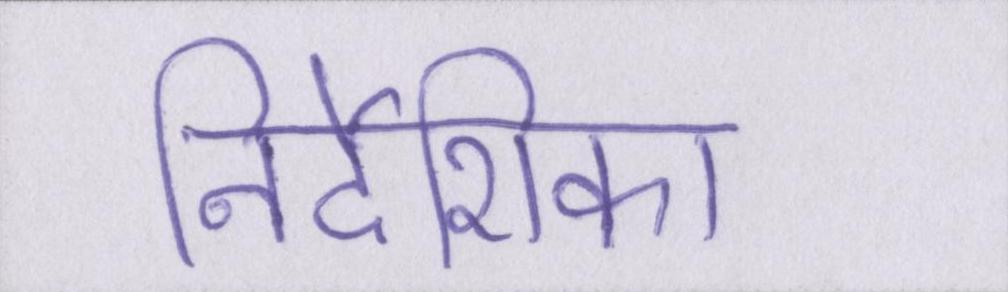 निर्देशिका